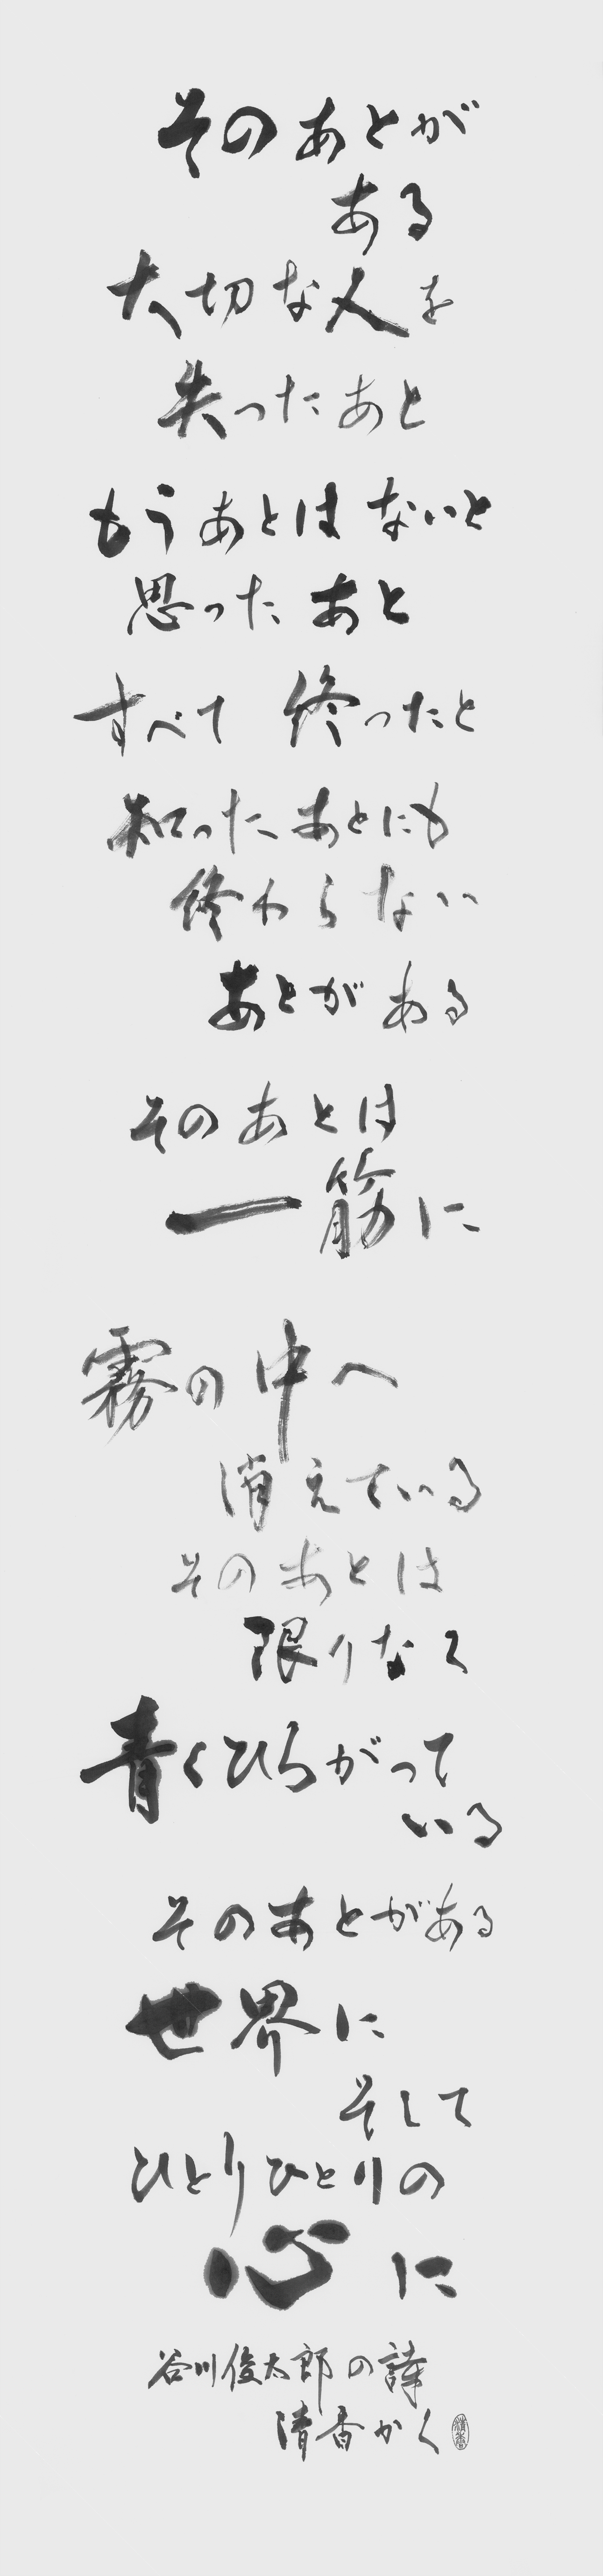 そのあとが
ある
大切な人を
失ったあと
もうあとはないと
思ったあと
すべて 終ったと
知ったあとにも
終わらない
あとがある
そのあとは
一筋に
霧の中へ
消えている
そのあとは
限りなく
青くひろがって
いる
そのあとがある
世界に
そして
ひとりひとりの
心に
谷川俊太郎の詩
清香かく